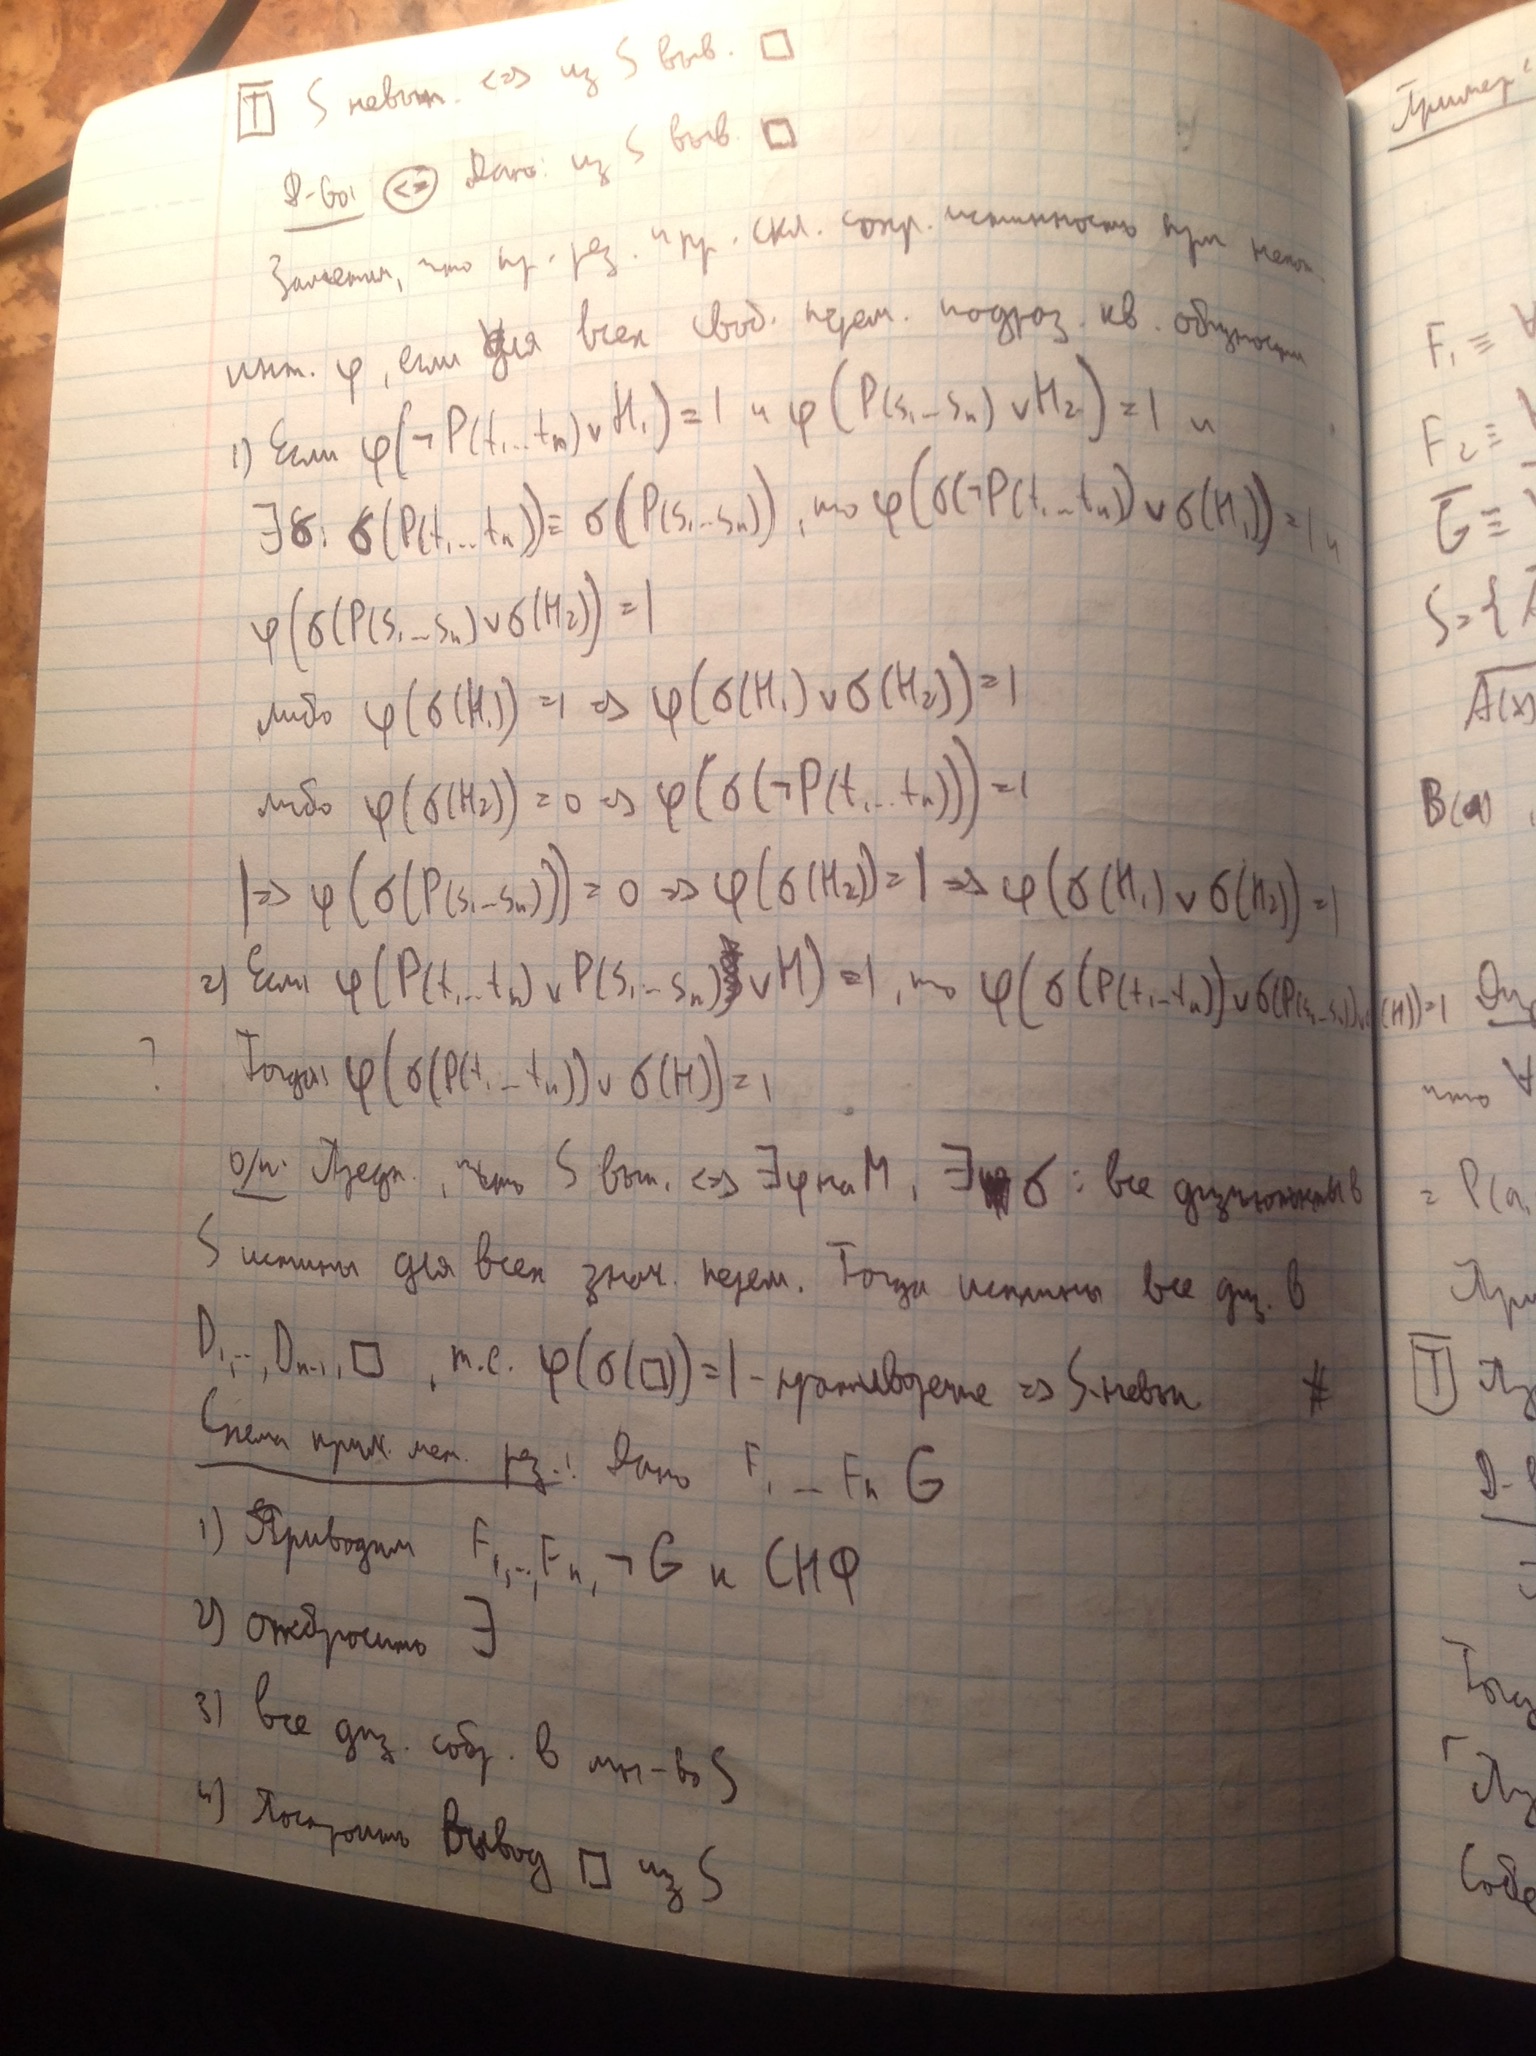 T S невып. <=> из S выв. □
Д-во: <= Дано: из S выв. □
Заметим, что пр. рез. и пр. скл. сохр. истинность при некот.
инт. φ, если для всех своб. перем. подраз. кв. общности
1) Если φ(¬P(t₁...tₙ)∨H₁)=1 и φ(P(s₁...sₙ)∨H₂)=1 и
∃σ: σ(P(t₁...tₙ))=σ(P(s₁...sₙ)), то φ(σ(¬P(t₁...tₙ))∨σ(H₁))=1 и
φ(σ(P(s₁...sₙ)∨σ(H₂))=1
либо φ(σ(H₁))=1 => φ(σ(H₁)∨σ(H₂))=1
либо φ(σ(H₂))=0 => φ(σ(¬P(t₁...tₙ)))=1
|=> φ(σ(P(s₁...sₙ)))=0 => φ(σ(H₂))=1 => φ(σ(H₁)∨σ(H₂))=1
2) Если φ(P(t₁...tₙ)∨P(s₁...sₙ)∨H)=1, то φ(σ(P(t₁...tₙ))∨σ(P(s₁...sₙ))∨(H))=1
? Тогда: φ(σ(P(t₁...tₙ))∨σ(H))=1
о/п: Предп., что S вып. <=> ∃φ на M, ∃ σ: все дизъюнкты в
S истины для всех знач. перем. Тогда истины все диз. в
D₁,..,Dₙ₋₁,□, т.е. φ(σ(□))=1 - противоречие => S-невып. #
Схема прим. мет. рез.: Дано F₁...Fₙ G
1) Приводим F₁,..,Fₙ, ¬G к СНФ
2) отбросить ∃
3) все диз. собр. в мн-во S
4) Построить Вывод □ из S
Пример:
F₁ ≡ ∀
F₂ ≡
G̅ ≡
S={
A(x)
B(a),
что ∀
= P(a,
T
Д-
Тогд